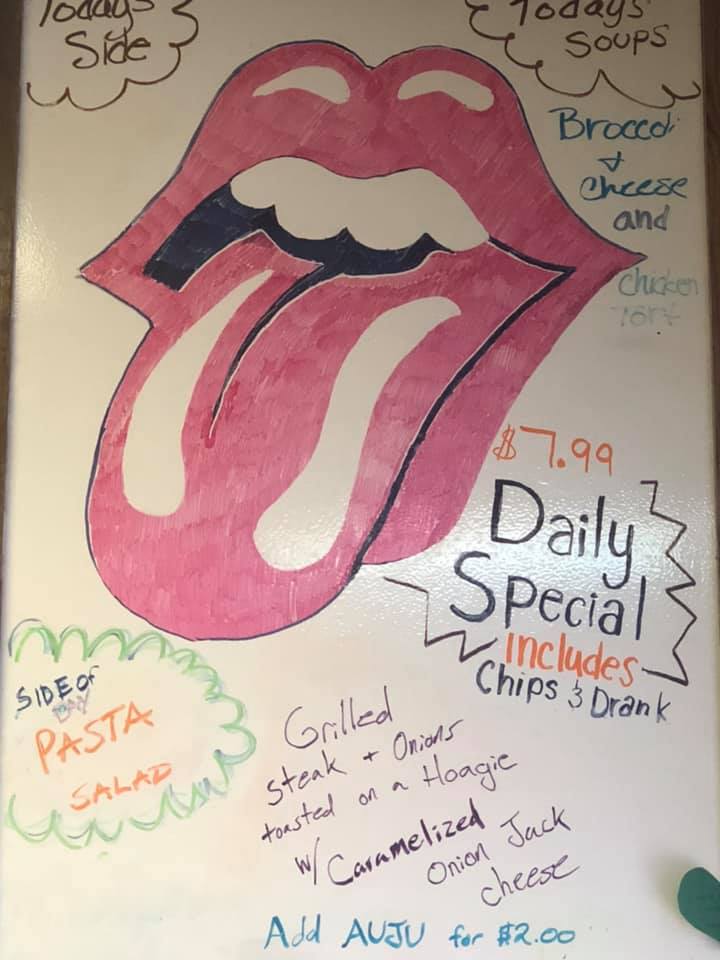 Todays
Side
Todays
SOUPS
Broccoli
+
Cheese
and
Chicken
Tort
$7.99
Daily
Special
includes
Chips & Drank
SIDE OF
DAY
PASTA
SALAD
Grilled
Steak + Onions
toasted on a Hoagie
w/ Caramelized
Onion Jack
cheese
Add AUJU for $2.00